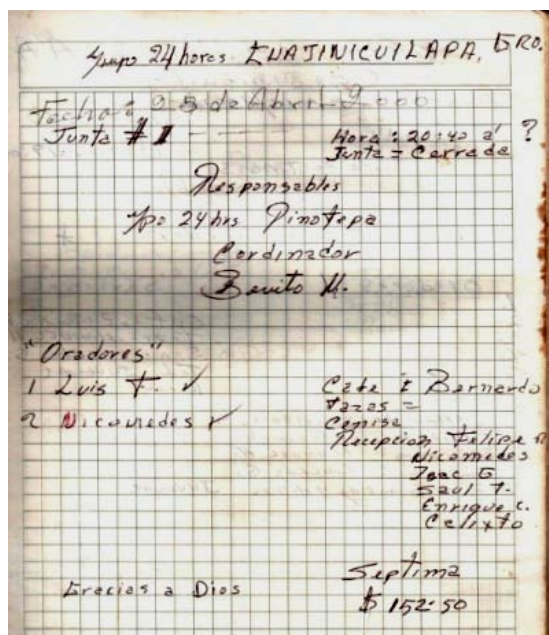 Grupo 24 horas CUAJINICUILAPA, GRO.
Fecha: 28 de Abril-2000
Junta # 1 Hora: 20:40 a ?
Junta = Cerrada
Responsables
Gpo 24 hrs Pinotepa
Cordinador
Benito M.
"Oradores"
1 Luis F. ✓
2 Nicomedes ✓
Cafe = Bernardo
tazas =
Ceniza
Recepcion Felipe
Nicomedes
Isac G
Saul T.
Enrique C.
Celixto
Septima
Gracias a Dios
$ 152.50